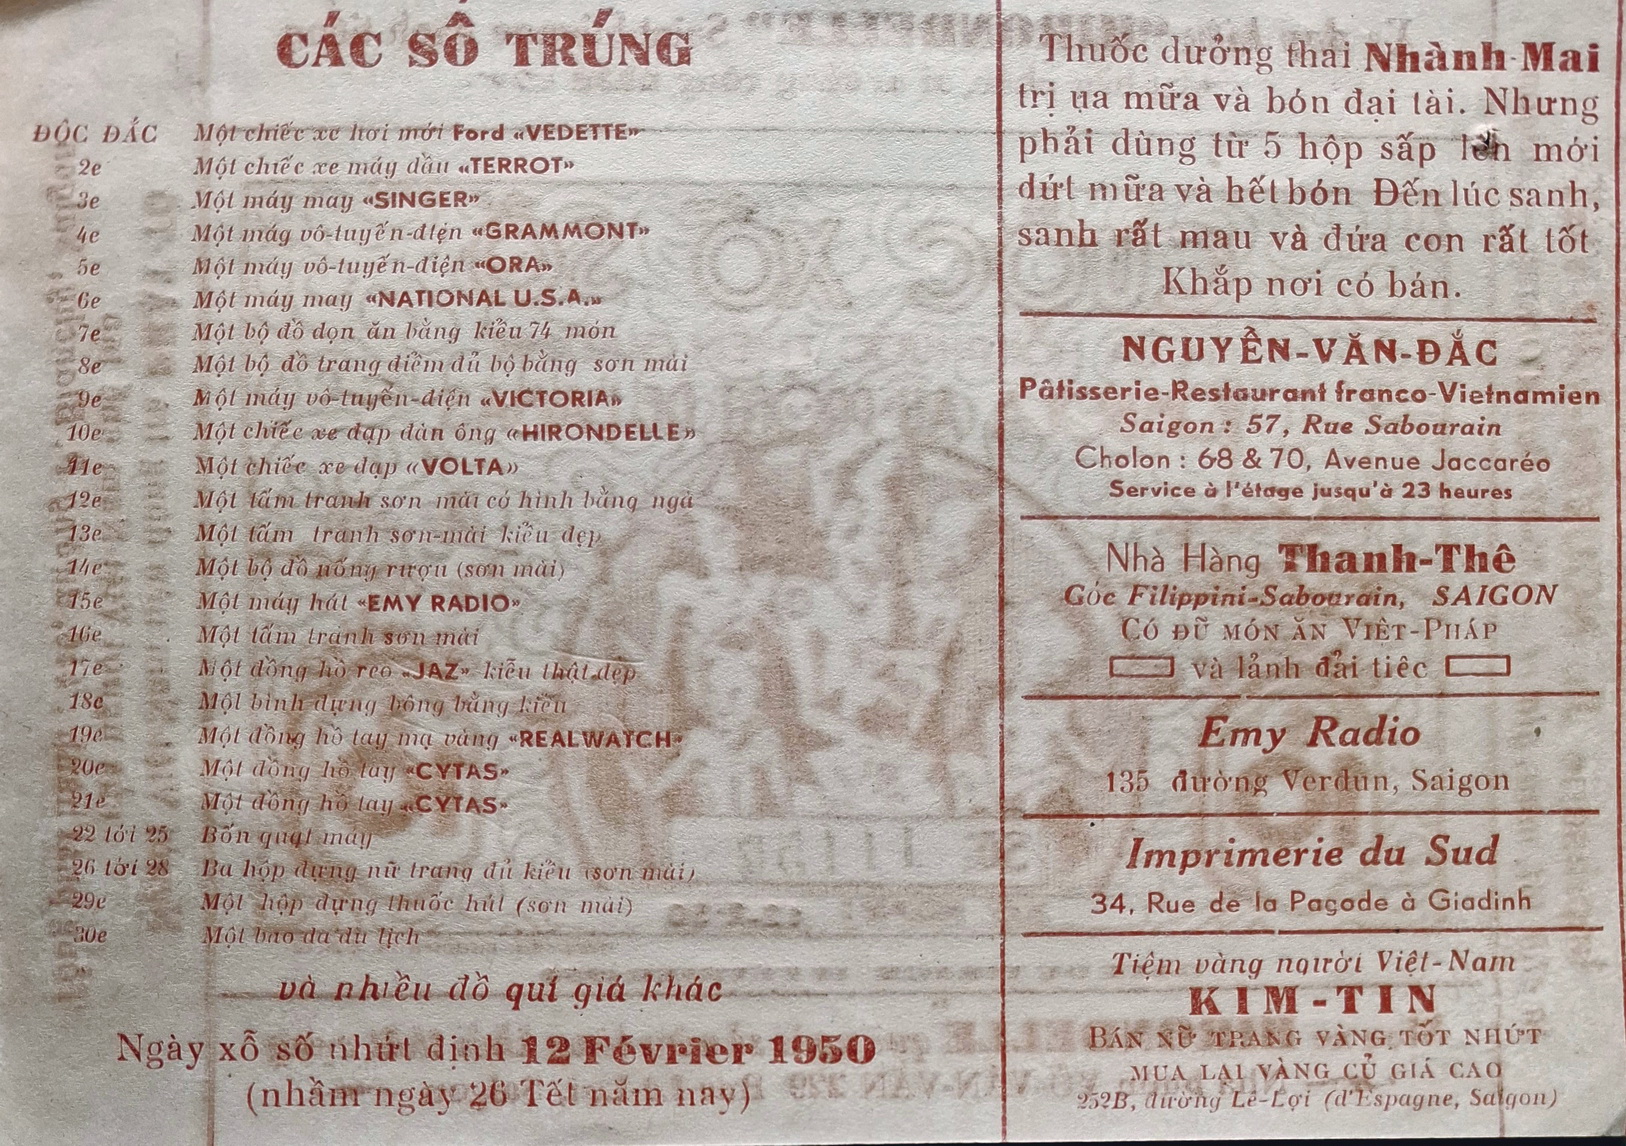 CÁC SỐ TRÚNG
ĐỘC ĐẮC Một chiếc xe hơi mới Ford «VEDETTE»
2e Một chiếc xe máy dầu «TERROT»
3e Một máy may «SINGER»
4e Một máy vô-tuyến-điện «GRAMMONT»
5e Một máy vô-tuyến-điện «ORA»
6e Một máy may «NATIONAL U.S.A.»
7e Một bộ đồ dọn ăn bằng kiểu 74 món
8e Một bộ đồ trang điểm đủ bộ bằng sơn mài
9e Một máy vô-tuyến-điện «VICTORIA»
10e Một chiếc xe đạp đàn ông «HIRONDELLE»
11e Một chiếc xe đạp «VOLTA»
12e Một tấm tranh sơn mài có hình bằng ngà
13e Một tấm tranh sơn-mài kiểu đẹp
14e Một bộ đồ uống rượu (sơn mài)
15e Một máy hát «EMY RADIO»
16e Một tấm tranh sơn mài
17e Một đồng hồ reo «JAZ» kiểu thật đẹp
18e Một bình đựng bông bằng kiểu
19e Một đồng hồ tay mạ vàng «REALWATCH»
20e Một đồng hồ tay «CYTAS»
21e Một đồng hồ tay «CYTAS»
22 tới 25 Bốn quạt máy
26 tới 28 Ba hộp đựng nữ trang đủ kiểu (sơn mài)
29e Một hộp đựng thuốc hút (sơn mài)
30e Một bao da du lịch
và nhiều đồ quí giá khác
Ngày xổ số nhứt định 12 Février 1950
(nhằm ngày 26 Tết năm nay)
Thuốc dưởng thai Nhành Mai
trị ụa mữa và bón đại tài. Nhưng
phải dùng từ 5 hộp sấp lên mới
dứt mữa và hết bón Đến lúc sanh,
sanh rất mau và đứa con rất tốt
Khắp nơi có bán.
NGUYỄN-VĂN-ĐẮC
Pâtisserie-Restaurant franco-Vietnamien
Saigon : 57, Rue Sabourain
Cholon : 68 & 70, Avenue Jaccaréo
Service à l'étage jusqu'à 23 heures
Nhà Hàng Thanh-Thê
Góc Filippini-Sabourain, SAIGON
CÓ ĐỦ MÓN ĂN VIỆT-PHÁP
và lảnh đải tiệc
Emy Radio
135 đường Verdun, Saigon
Imprimerie du Sud
34, Rue de la Pagode à Giadinh
Tiệm vàng người Việt-Nam
KIM-TIN
BÁN NỮ TRANG VÀNG TỐT NHỨT
MUA LẠI VÀNG CỦ GIÁ CAO
252B, đường Lê-Lợi (d'Espagne, Saigon)